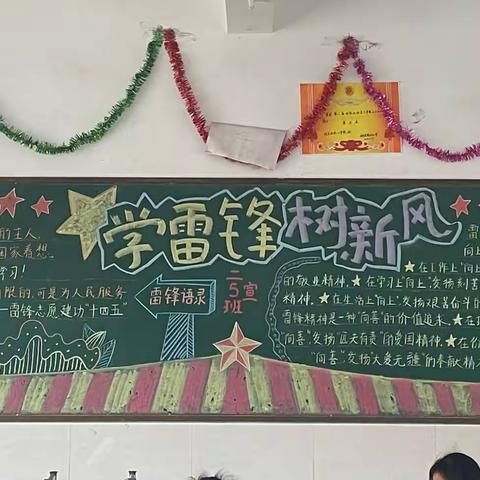 学雷锋 树新风
的主人,
国家着想.
学习!
限的,可是为人民服务
雷锋志愿建功"十四五"
雷锋语录
二5班宣
雷
向上
★在工作上"向上
的敬业精神.★在学习上"向上"发扬刻苦
精神.★在生活上"向上"发扬艰苦奋斗的
雷锋精神是一种"向善"的价值追求.★在
向善"发扬"匹夫有责"的爱国精神.★在
"向善"发扬"大爱无疆"的奉献精